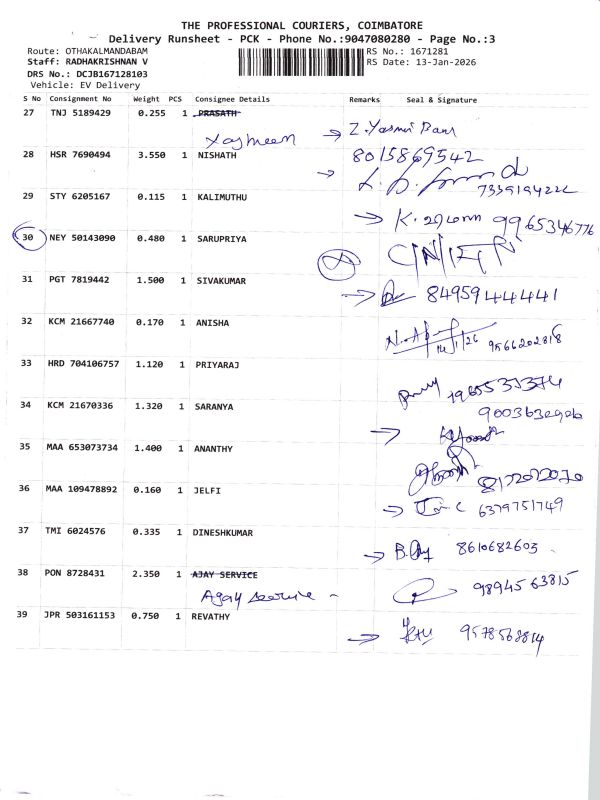 THE PROFESSIONAL COURIERS, COIMBATORE
Delivery Runsheet - PCK - Phone No.:9047080280 - Page No.:3
Route: OTHAKALMANDABAM RS No.: 1671281
Staff: RADHAKRISHNAN V RS Date: 13-Jan-2026
DRS No.: DCJB167128103
Vehicle: EV Delivery
S No Consignment No Weight PCS Consignee Details Remarks Seal & Signature
27 TNJ 5189429 0.255 1 PRASATH
28 HSR 7690494 3.550 1 NISHATH 8015869542
29 STY 6205167 0.115 1 KALIMUTHU
K. 9965346776
30 NEY 50143090 0.480 1 SARUPRIYA
31 PGT 7819442 1.500 1 SIVAKUMAR
8495944441
32 KCM 21667740 0.170 1 ANISHA
14/1/26 9566202818
33 HRD 704106757 1.120 1 PRIYARAJ
34 KCM 21670336 1.320 1 SARANYA
35 MAA 653073734 1.400 1 ANANTHY
36 MAA 109478892 0.160 1 JELFI
6379751749
37 TMI 6024576 0.335 1 DINESHKUMAR
8610682603
38 PON 8728431 2.350 1 AJAY SERVICE
Ajay service - 9894563815
39 JPR 503161153 0.750 1 REVATHY
9578568814